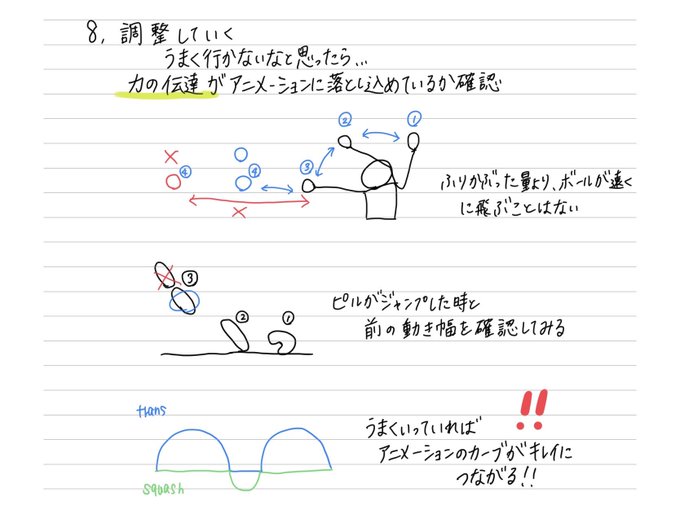 8, 調整していく
うまく行かないなと思ったら...
力の伝達がアニメーションに落とし込めているか確認
② ①
× ④ ④ ③
×
ふりかぶった量より、ボールが遠く
に飛ぶことはない
③
② ①
ピルがジャンプした時と
前の動き幅を確認してみる
trans
squash
!!
うまくいっていれば
アニメーションのカーブがキレイに
つながる!!